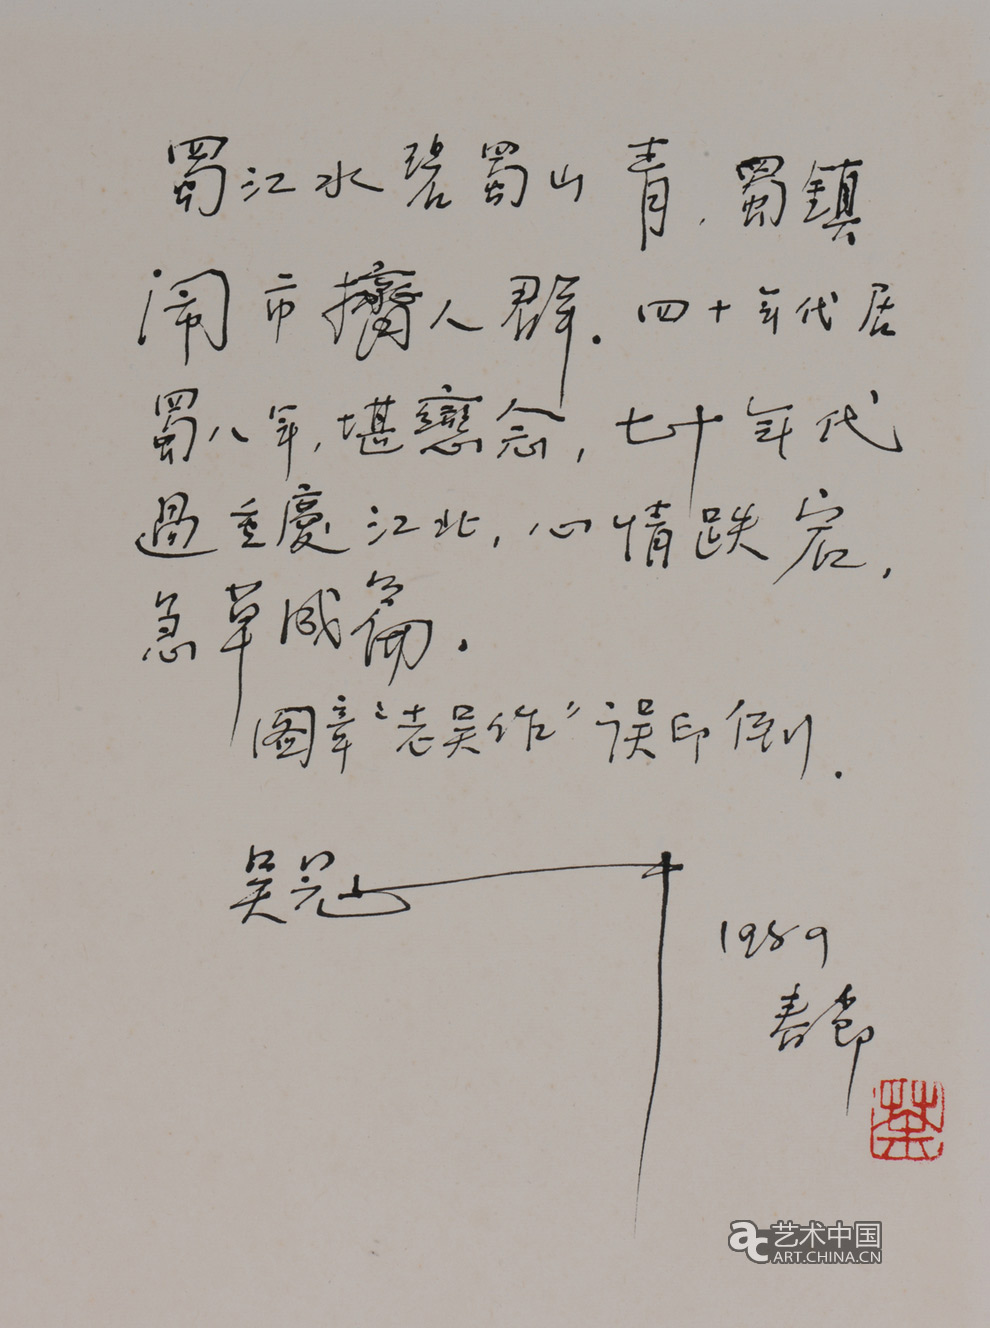 蜀江水碧蜀山青，蜀鎮
闹市擠人群．四十年代居
蜀八年，堪戀念，七十年代
過重慶江北，心情跌宕，
急草成篇．
图章“老吴作”误印倒．
吴冠中
1989
春節
荼
艺术中国
ART.CHINA.CN